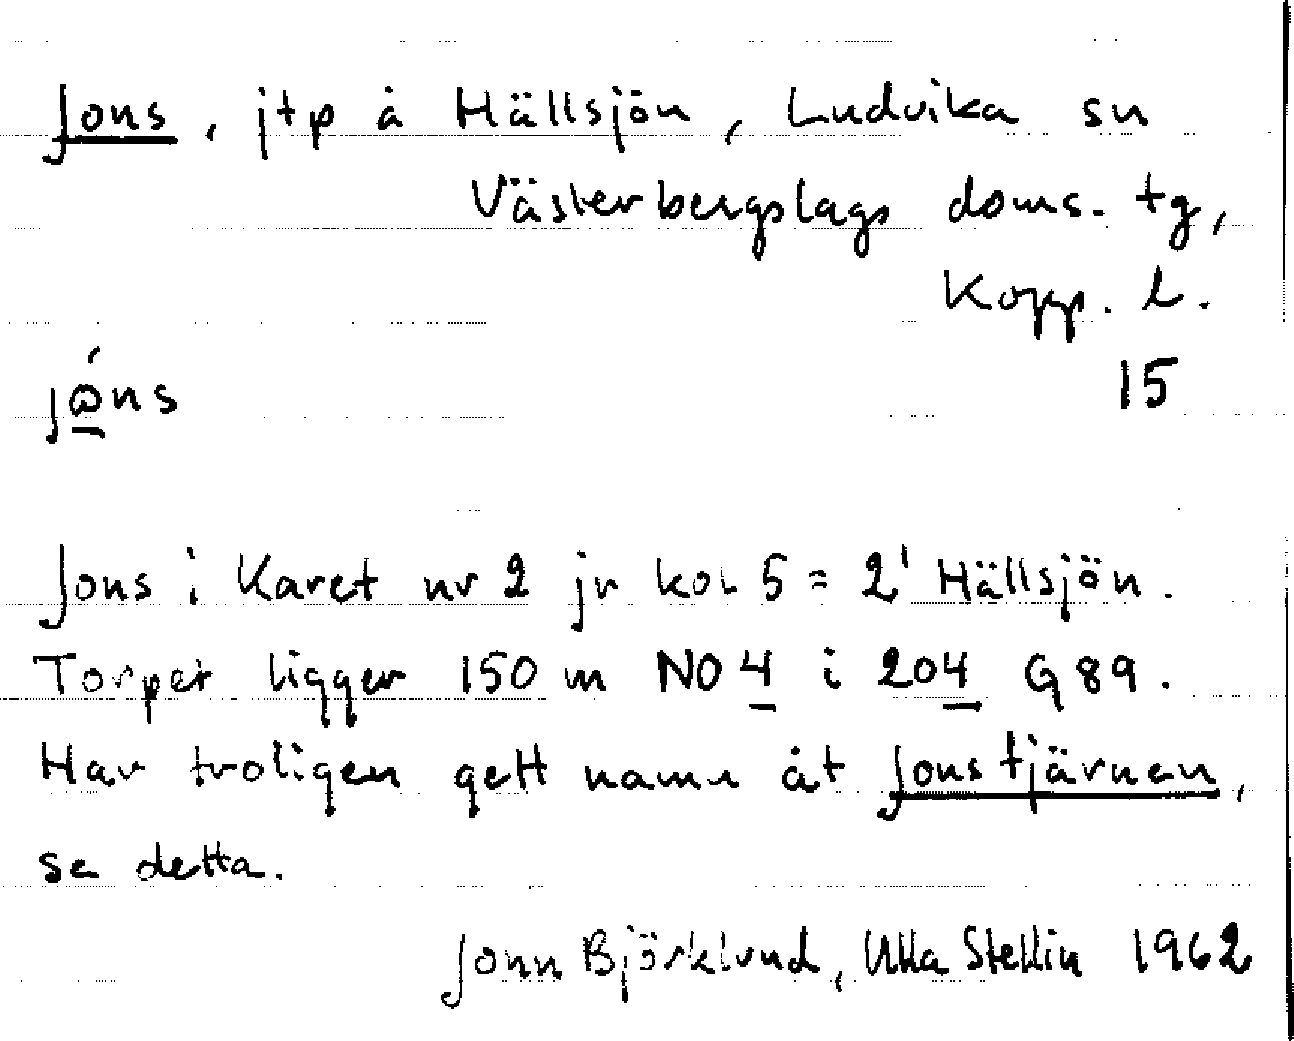 Jons, jtp å Hällsjön, Ludvika sn
Västerbergslags doms. tg,
Kopp. l.
15
Jons i Karet nr 2 jr kol 5 = 2¹ Hällsjön.
Torpet ligger 150 m NO 4 i 204 G 89.
Har troligen gett namn åt Jonstjärnen,
se detta.
Jonn Björklund, Ulla Stellin 1962